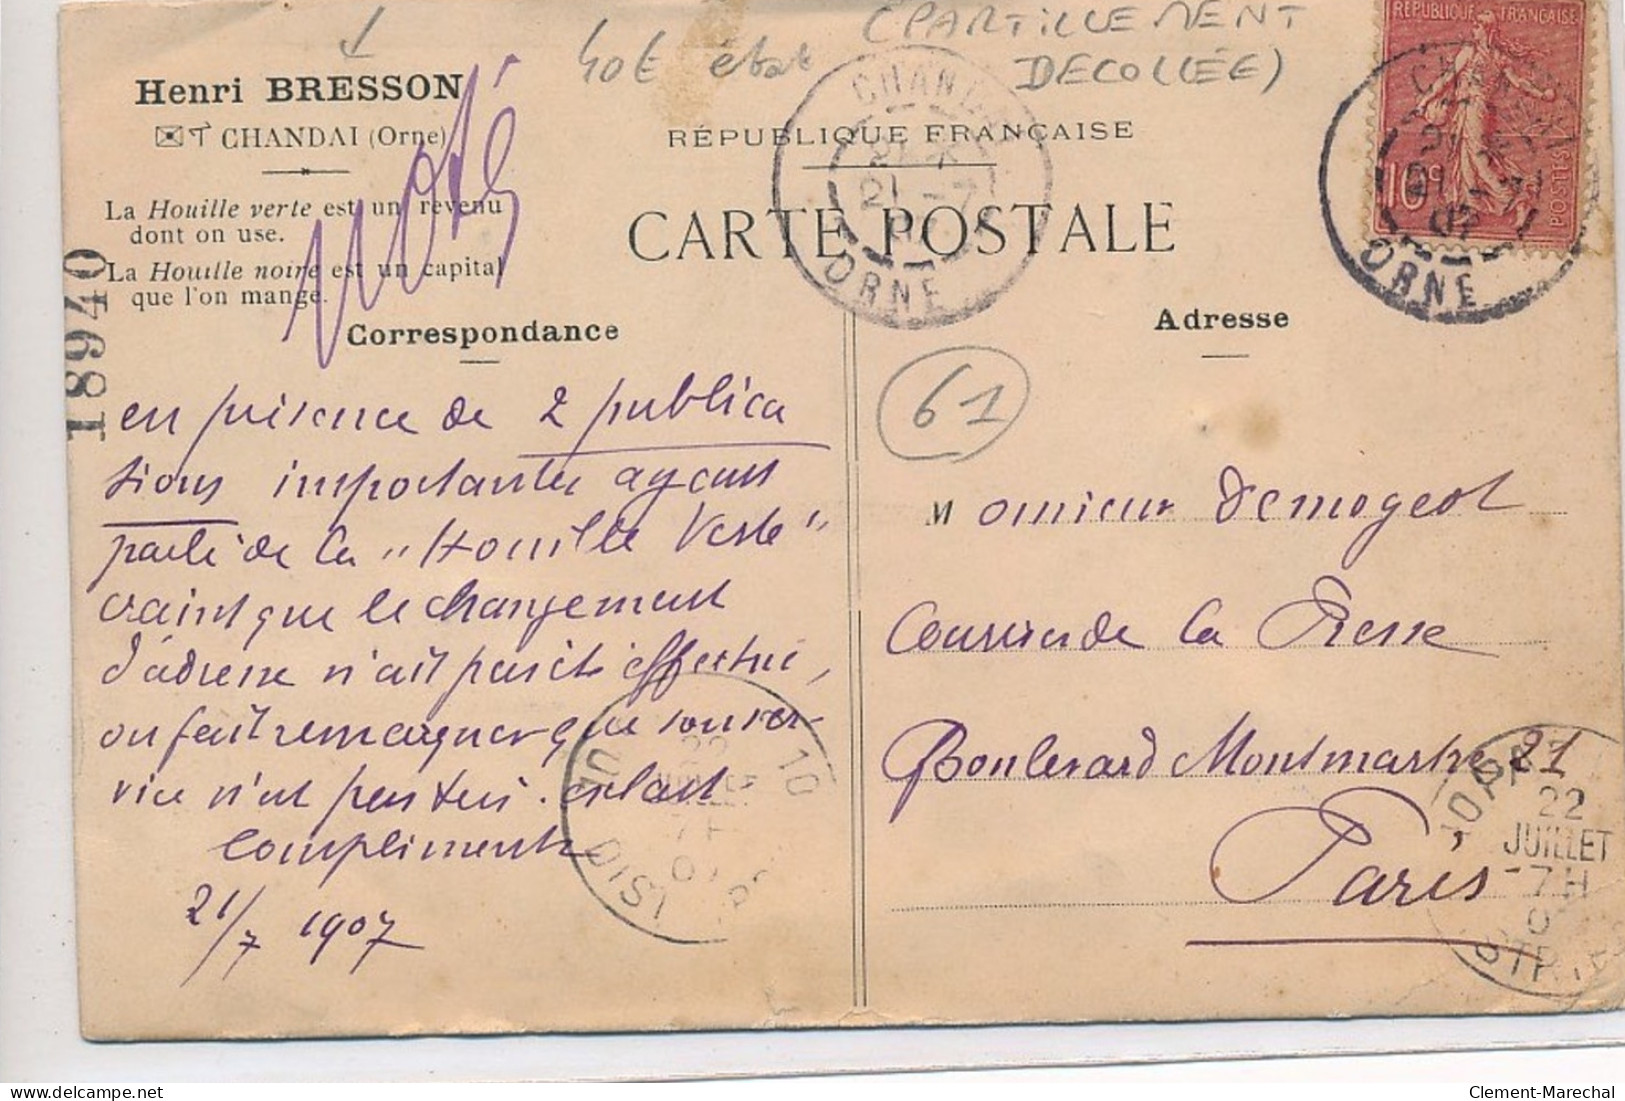 40€ état (PARTILLEMENT
DECOLLÉE)
Henri BRESSON
CHANDAI (Orne)
La Houille verte est un revenu
dont on use.
La Houille noire est un capital
que l'on mange.
noté
18940
RÉPUBLIQUE FRANÇAISE
CARTE POSTALE
RÉPUBLIQUE FRANÇAISE
10c
POSTES
CHANDAI
21 -7
ORNE
CHANDAI
21 -7
07
ORNE
Correspondance
en présence de 2 publica
tions importantes ayant
parlé de la "Houille Verte"
craint que le changement
d'adresse n'ait pas été effectué,
on fait remarquer que son ser-
vice n'est pas
compliments
21/7 1907
Adresse
61
Monsieur Demogeot
Courrier de la Presse
Boulevard Montmartre 21
Paris
22
JUILLET
7 H
10
DIST
22
JUILLET
7 H
0